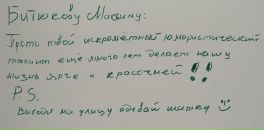 Битюкову Максиму:
Пусть твой искрометный юмористический
талант ещё много лет делает нашу
жизнь ярче и красочней!!
P.S.
Выходя на улицу одевай шапку